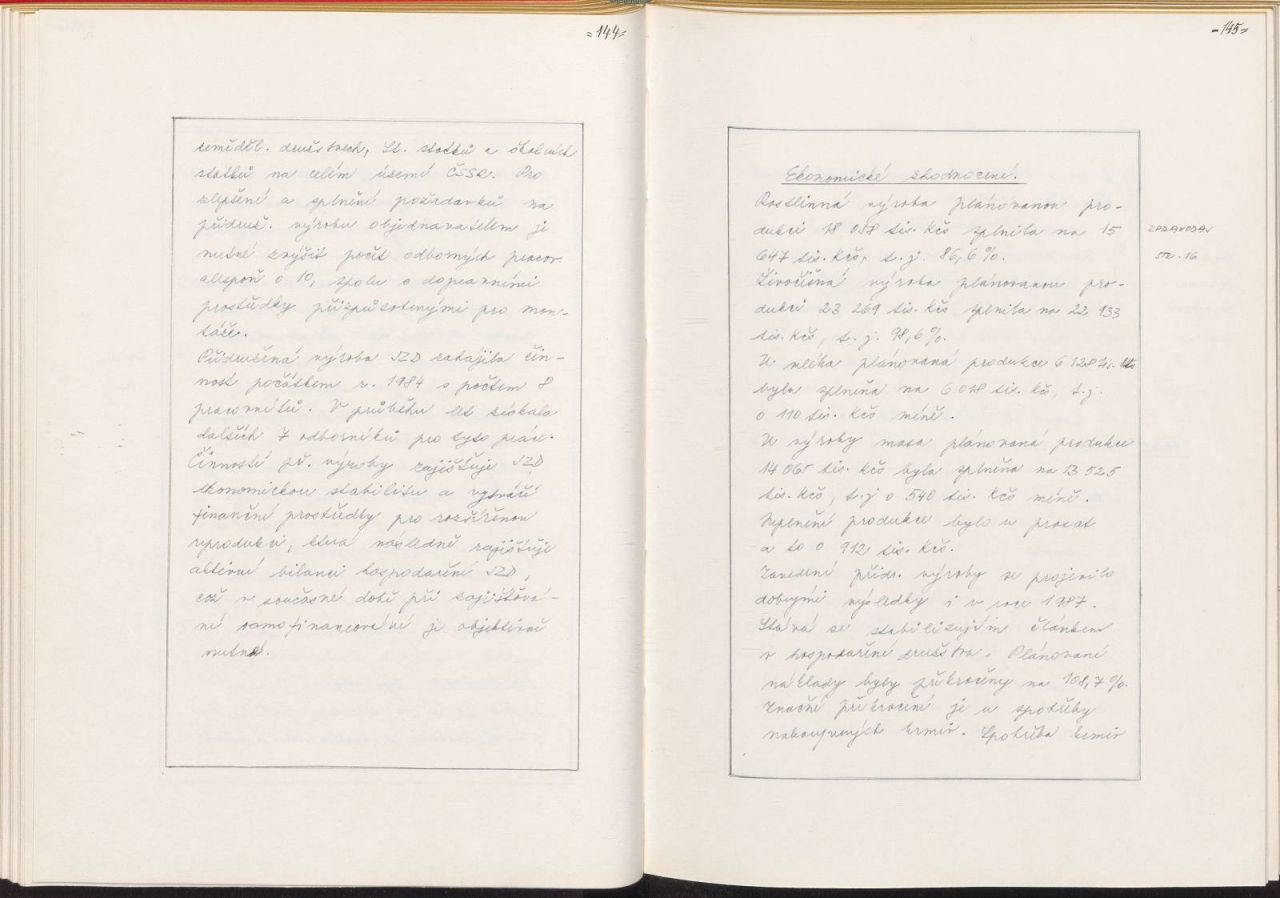 =144=
zeměděl. družstvech, St. statků a školních
statků na celém území ČSSR. Pro
zlepšení a splnění požadavků na
přidruž. výrobu objednavatelem je
nutné zvýšit počet odborných pracov.
allespoň o 10, spolu s dopravními
prostředky přizpůsobenými pro mon-
táže.
Přidružená výroba JZD zahájila čin-
nost počátkem r. 1984 s počtem 8
pracovníků. V průběhu let získala
dalších 7 odborníků pro tyto práce.
Činností př. výroby zajišťuje JZD
ekonomickou stabilitu a vytváří
finanční prostředky pro rozšířenou
reprodukci, která následně zajišťuje
aktivní bilanci hospodaření JZD,
což v současné době při zajišťová-
ní samofinancování je objektivně
nutné.
-145=
Ekonomické zhodnocení.
Rostlinná výroba plánovanou pro-
dukci 18 058 tis. Kčs splnila na 15
647 tis. Kčs, t. j. 86,6 %.
ZPRAVODAJ
STR. 16
Živočišná výroba plánovanou pro-
dukci 23 269 tis. Kčs splnila na 22 933
tis. Kčs, t. j. 98,6 %.
U mléka plánovaná produkce 6 128 tis. Kčs
byla splněna na 6 018 tis. Kčs, t.j.
o 110 tis. Kčs méně.
U výroby masa plánovaná produkce
14 065 tis. Kčs byla splněna na 13 525
tis. Kčs, t.j o 540 tis. Kčs méně.
Neplnění produkce bylo u prasat
a to o 912 tis. Kčs.
Zavedení přidr. výroby se projevilo
dobrými výsledky i v roce 1987.
Stává se stabilizujícím článkem
v hospodaření družstva. Plánované
náklady byly překročeny na 108,7 %.
Značné překročení je u spotřeby
nakoupených krmiv. Spotřeba krmiv